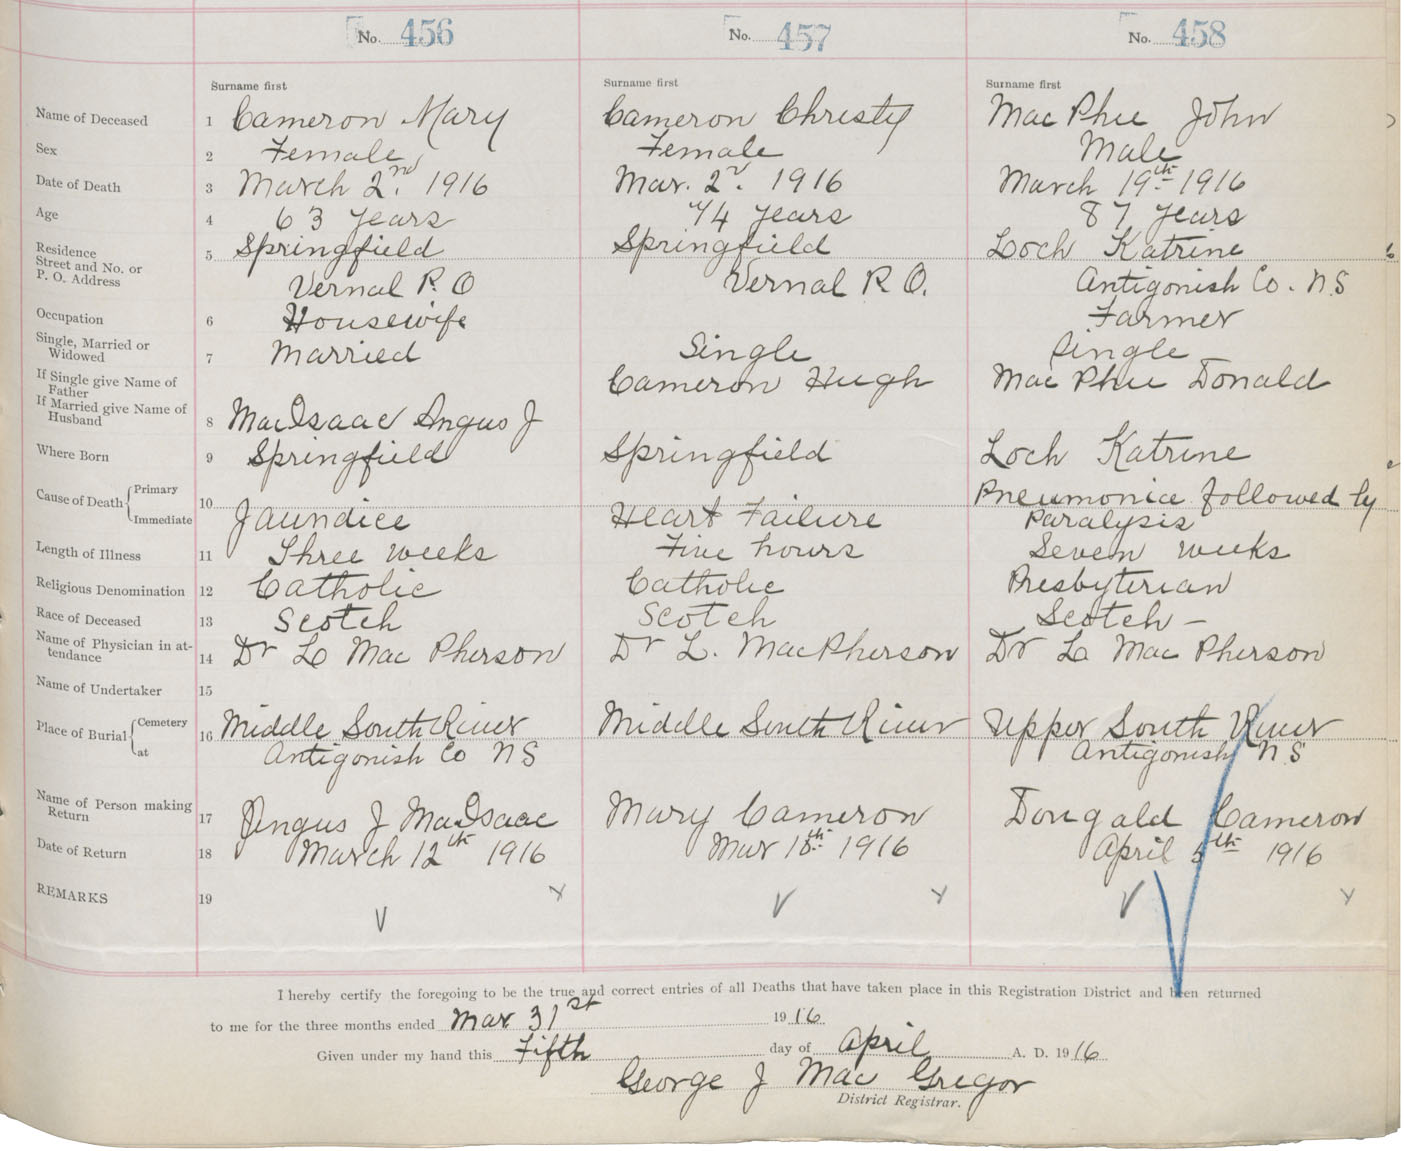 No. 456
No. 457
No. 458
Surname first
Surname first
Surname first
Name of Deceased 1 Cameron Mary Cameron Christy MacPhee John
Sex 2 Female Female Male
Date of Death 3 March 2nd. 1916 Mar. 2d. 1916 March 19th 1916
Age 4 63 years 74 years 87 years
Residence
Street and No. or
P. O. Address 5 Springfield Springfield Loch Katrine
Vernal P.O Vernal P.O. Antigonish Co. N.S
Occupation 6 Housewife Farmer
Single, Married or
Widowed 7 Married Single Single
If Single give Name of
Father Cameron Hugh MacPhee Donald
If Married give Name of
Husband 8 MacIsaac Angus J
Where Born 9 Springfield Springfield Loch Katrine
Cause of Death { Primary 10 Pneumonia followed by
Immediate Jaundice Heart Failure Paralysis
Length of Illness 11 Three weeks Five hours Seven weeks
Religious Denomination 12 Catholic Catholic Presbyterian
Race of Deceased 13 Scotch Scotch Scotch -
Name of Physician in at-
tendance 14 Dr L Mac Pherson Dr L. MacPherson Dr L Mac Pherson
Name of Undertaker 15
Place of Burial { Cemetery 16 Middle South River Middle South River Upper South River
at Antigonish Co NS Antigonish NS
Name of Person making
Return 17 Angus J MacIsaac Mary Cameron Dougald Cameron
Date of Return 18 March 12th 1916 Mar 18th 1916 April 5th 1916
REMARKS 19
I hereby certify the foregoing to be the true and correct entries of all Deaths that have taken place in this Registration District and been returned
to me for the three months ended Mar 31st 1916
Given under my hand this Fifth day of April A. D. 1916
George J Mac Gregor
District Registrar.